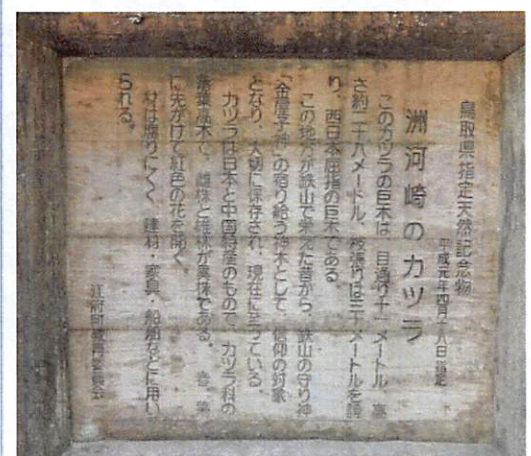 鳥取県指定天然記念物
平成元年四月十八日指定
洲河崎のカツラ
このカツラの巨木は、目通り十一メートル、高
さ約二十八メートル、枝張りは三十メートルを誇
り、西日本屈指の巨木である。
この地方が鉄山で栄えた昔から、鉄山の守り神
「金屋子神」の宿り給う神木として、信仰の対象
となり、大切に保存され、現在に至っている。
カツラは日本と中国特産のもので、カツラ科の
落葉高木で、雄株と雌株が異株である。春、葉
に先がけて紅色の花を開く。
材は腐りにくく、建材・家具・船舶などに用い
られる。
江府町教育委員会